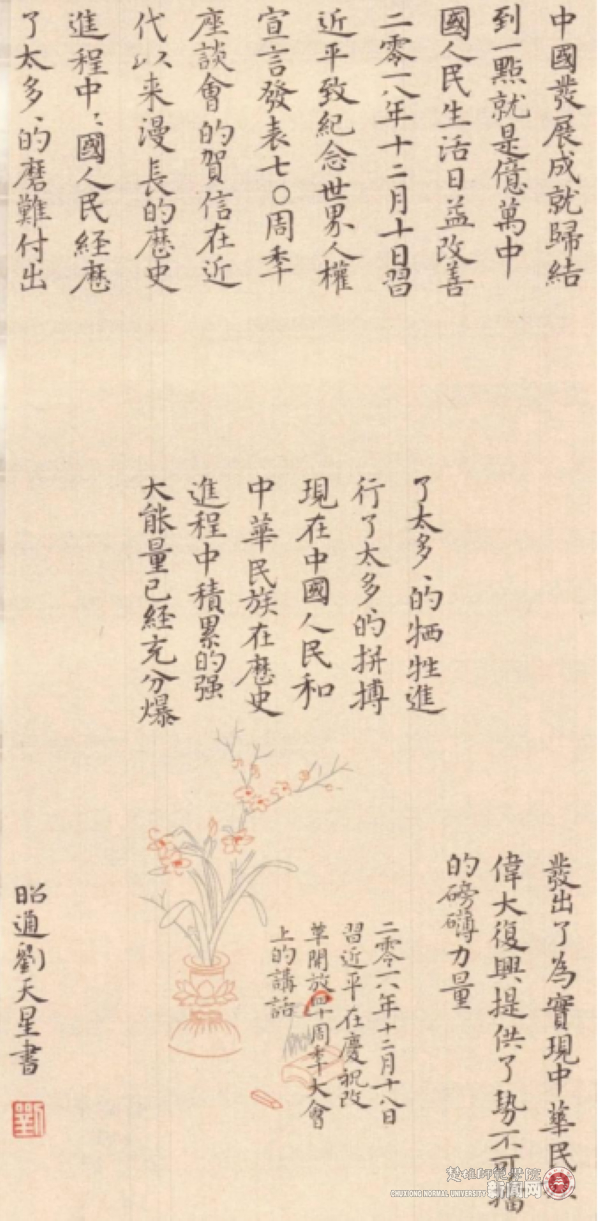 中國發展成就歸結
到一點就是億萬中
國人民生活日益改善
二零一八年十二月十日習
近平致紀念世界人權
宣言發表七〇周季
座談會的賀信在近
代以来漫長的歷史
進程中〻國人民経歷
了太多、的磨難付出
了太多、的牺牲進
行了太多的拼搏
現在中國人民和
中華民族在歷史
進程中積累的强
大能量已経充分爆
發出了為實現中華民
偉大復興提供了勢不可擋
的磅礴力量
二零一八年十二月十八日
習近平在慶祝改
革開放四十周季大會
上的講話
昭通劉天星書
劉
楚雄師範學院
新闻网
CHUXIONG NORMAL UNIVERSITY